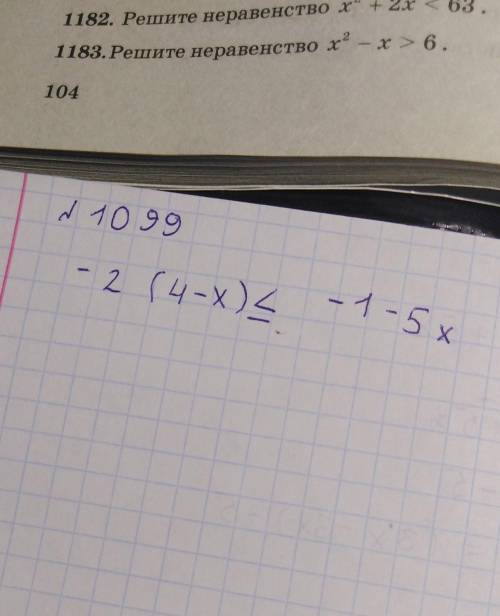 1182. Решите неравенство x² + 2x < 63 .
1183.Решите неравенство x² − x > 6 .
104
№ 1099
-2 (4-x) ≤ -1-5x